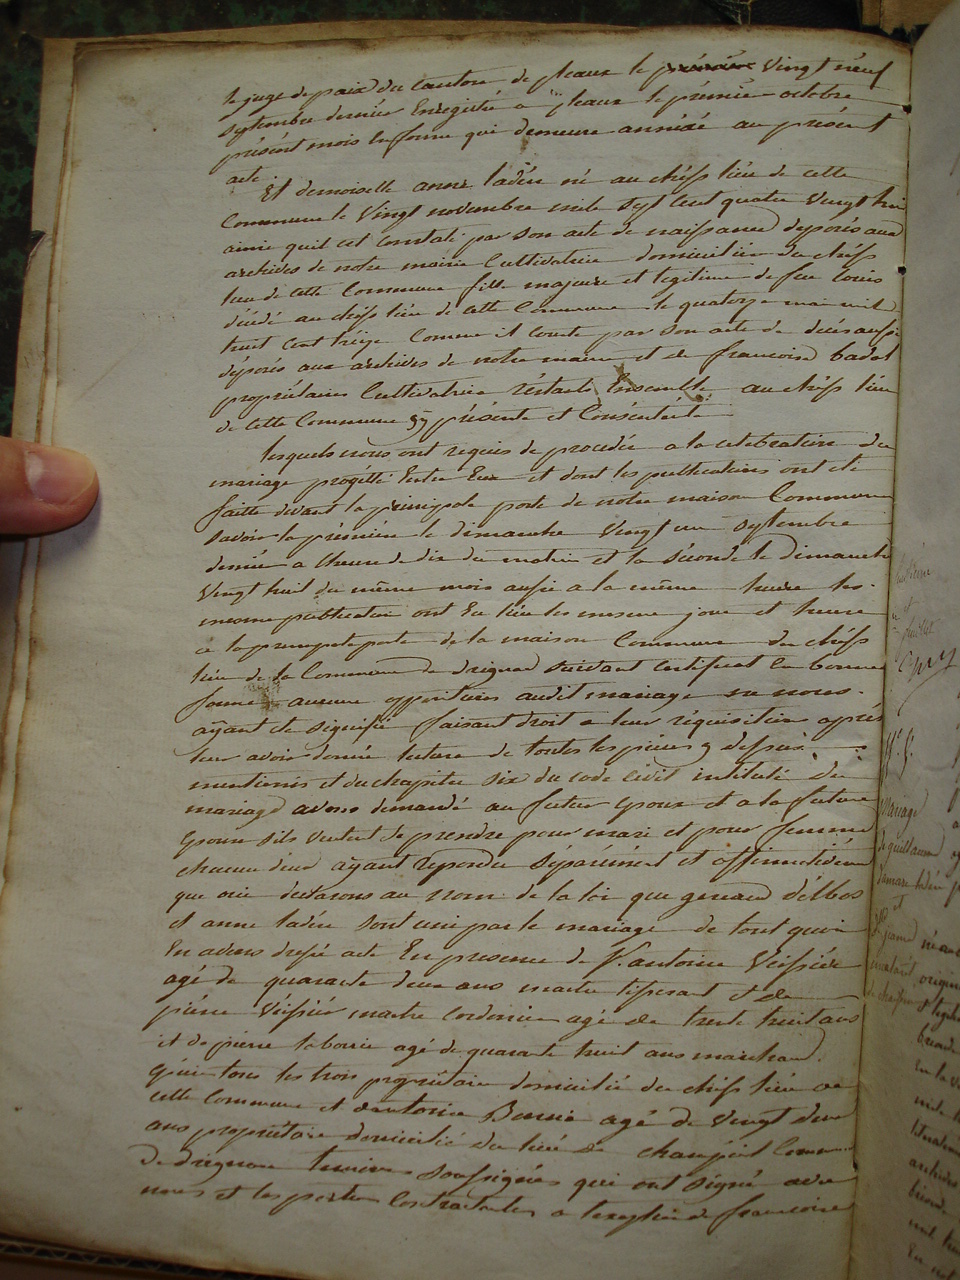 le juge de paix du canton de pleaux le premier Vingt neuf
septembre dernier Enregistré a pleaux le premier octobre
présent mois en forme qui demeure annexé au présent
acte
Et demoiselle anne ladén né au cheff lieu de cette
Commune le Vingt novembre mile sept Cent quatre Vingt
ainsi quil est constaté par son acte de naissance déposés aux
archives de notre mairie Cultivatrice domiciliée du cheff
lieu de cette Commune fille majeure et légitime de feu louis
décédé au cheff lieu de cette Commune le quatorze mai mil
huit Cent treize Comme il conste par son acte de décès aussi
déposés aux archives de notre mairie et de francoise badal
propriétaires Cultivatrice réstants Ensemble au cheff lieu
de cette Commune présente et Consentante
lesquels nous ont requis de proceder a la celebration du
mariage progétté Entre Eux et dont les publications ont été
faitte devant la principale porte de notre maison Commune
savoir la première le dimanche Vingt un septembre
dernier a lheure de dix du matin et la séconde le dimanche
Vingt huit du même mois aussi a la même heure les
mesme publication ont Eu lieu les mesme jour et heure
a la principale porte de la maison Commune du cheff
lieu de la Commune de drignac suivant certificat En bonne
forme aucune oppositions audit mariage ne nous
ayant été signifié faisant droit a leur réquisition aprés
leur avoir donné lecture de toutes les pièces y dessus
mentionés et du chapitre six du code civil intitulé du
mariage avons demandé au futur epoux et a la future
epouse sils veulent se prendre pour mari et pour femme
chacun deux ayant repondu séparément et affirmativement
que oui declarons au nom de la loi que geraud délbos
et anne ladén sont uni par le mariage de tout quoi
En avons dressé acte En presence de antoine Veissiére
agé de quarante deux ans maitre tisserant et de
piérre Veissiér maitre cordonier agé de trente huit ans
et de pierre laborie agé de quarante huit ans marchand
quoi tous les trois propriétaire domicilié du cheff lieu de
cette Commune et dantoine agé de Vingt deux
ans propriétaire domicilié du lieu de Commune
de drignac temoins soussignés qui ont signé avec
nous et les parties Contractantes a lexeption de francoise
Mariage
de guillaume
et